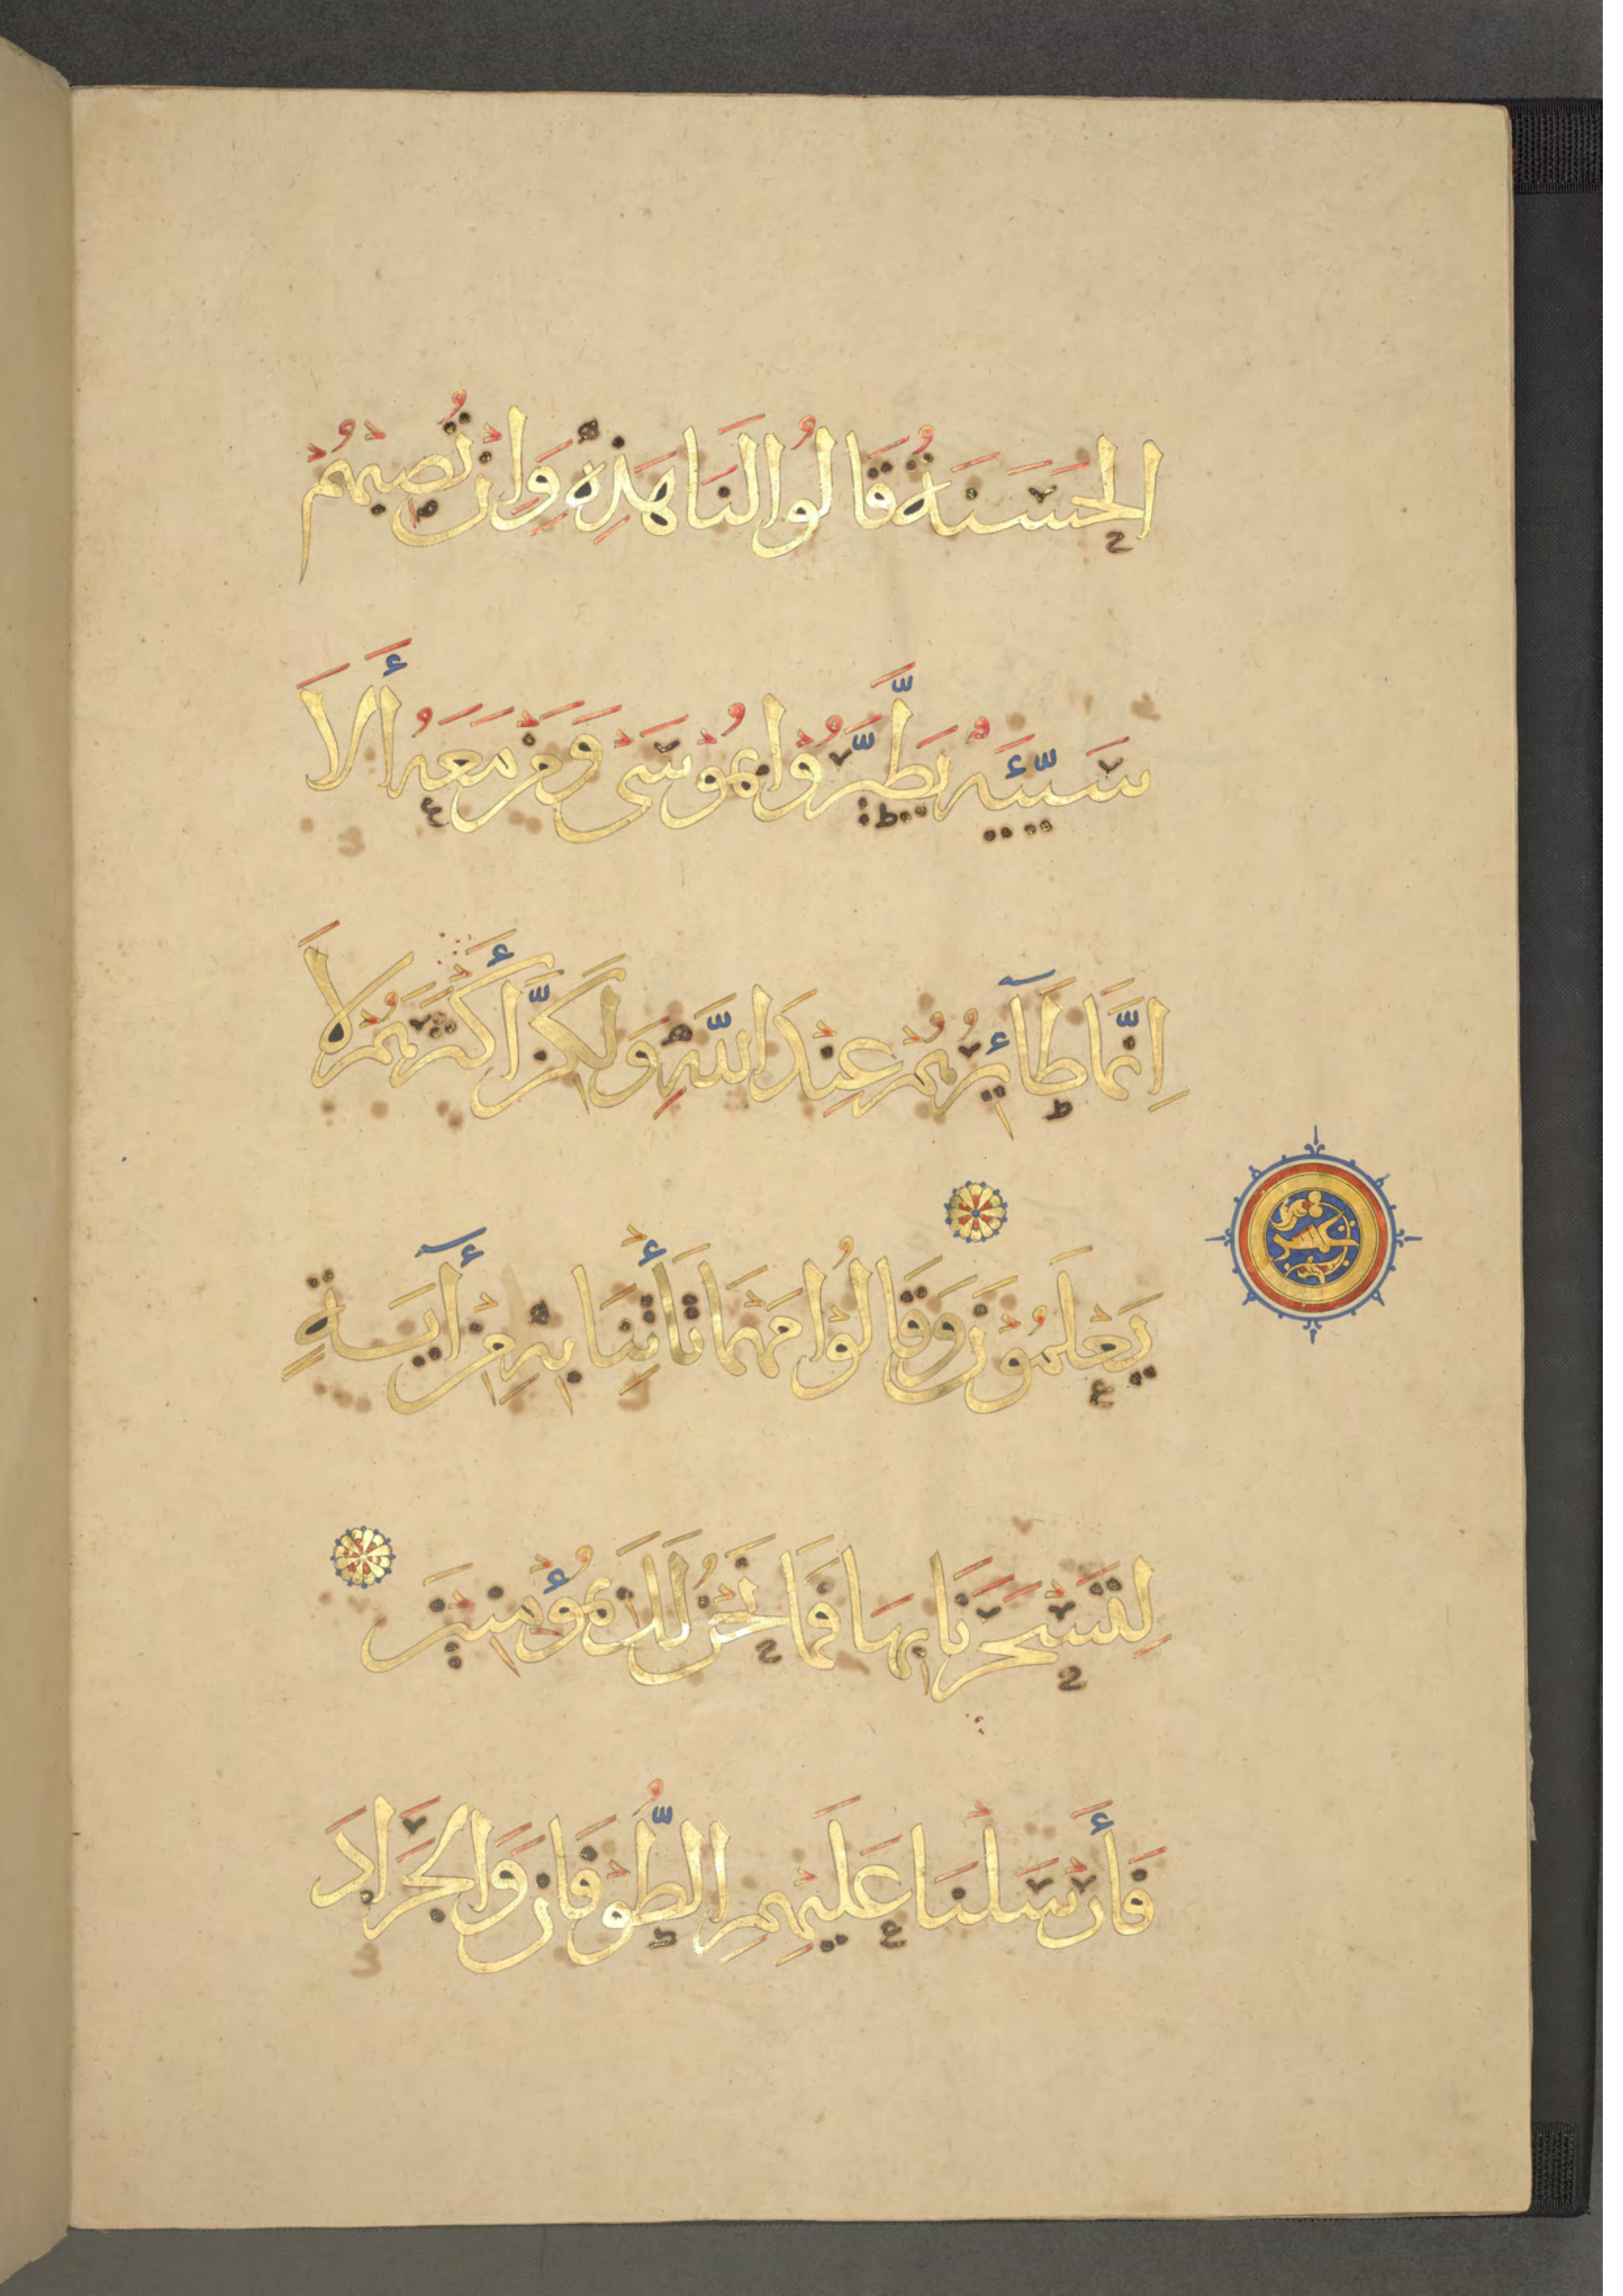 الْحَسَنَةُ قَالُوا لَنَا هَذِهِ وَإِنْ تُصِبْهُمْ
سَيِّئَةٌ يَطَّيَّرُوا بِمُوسَى وَمَنْ مَعَهُ أَلَا
إِنَّمَا طَآئِرُهُمْ عِنْدَ اللَّهِ وَلَكِنَّ أَكْثَرَهُمْ لَا
يَعْلَمُونَ وَقَالُوا مَهْمَا تَأْتِنَا بِهِ مِنْ آيَةٍ
لِتَسْحَرَنَا بِهَا فَمَا نَحْنُ لَكَ بِمُؤْمِنِينَ
فَأَرْسَلْنَا عَلَيْهِمِ الطُّوفَانَ وَالْجَرَادَ